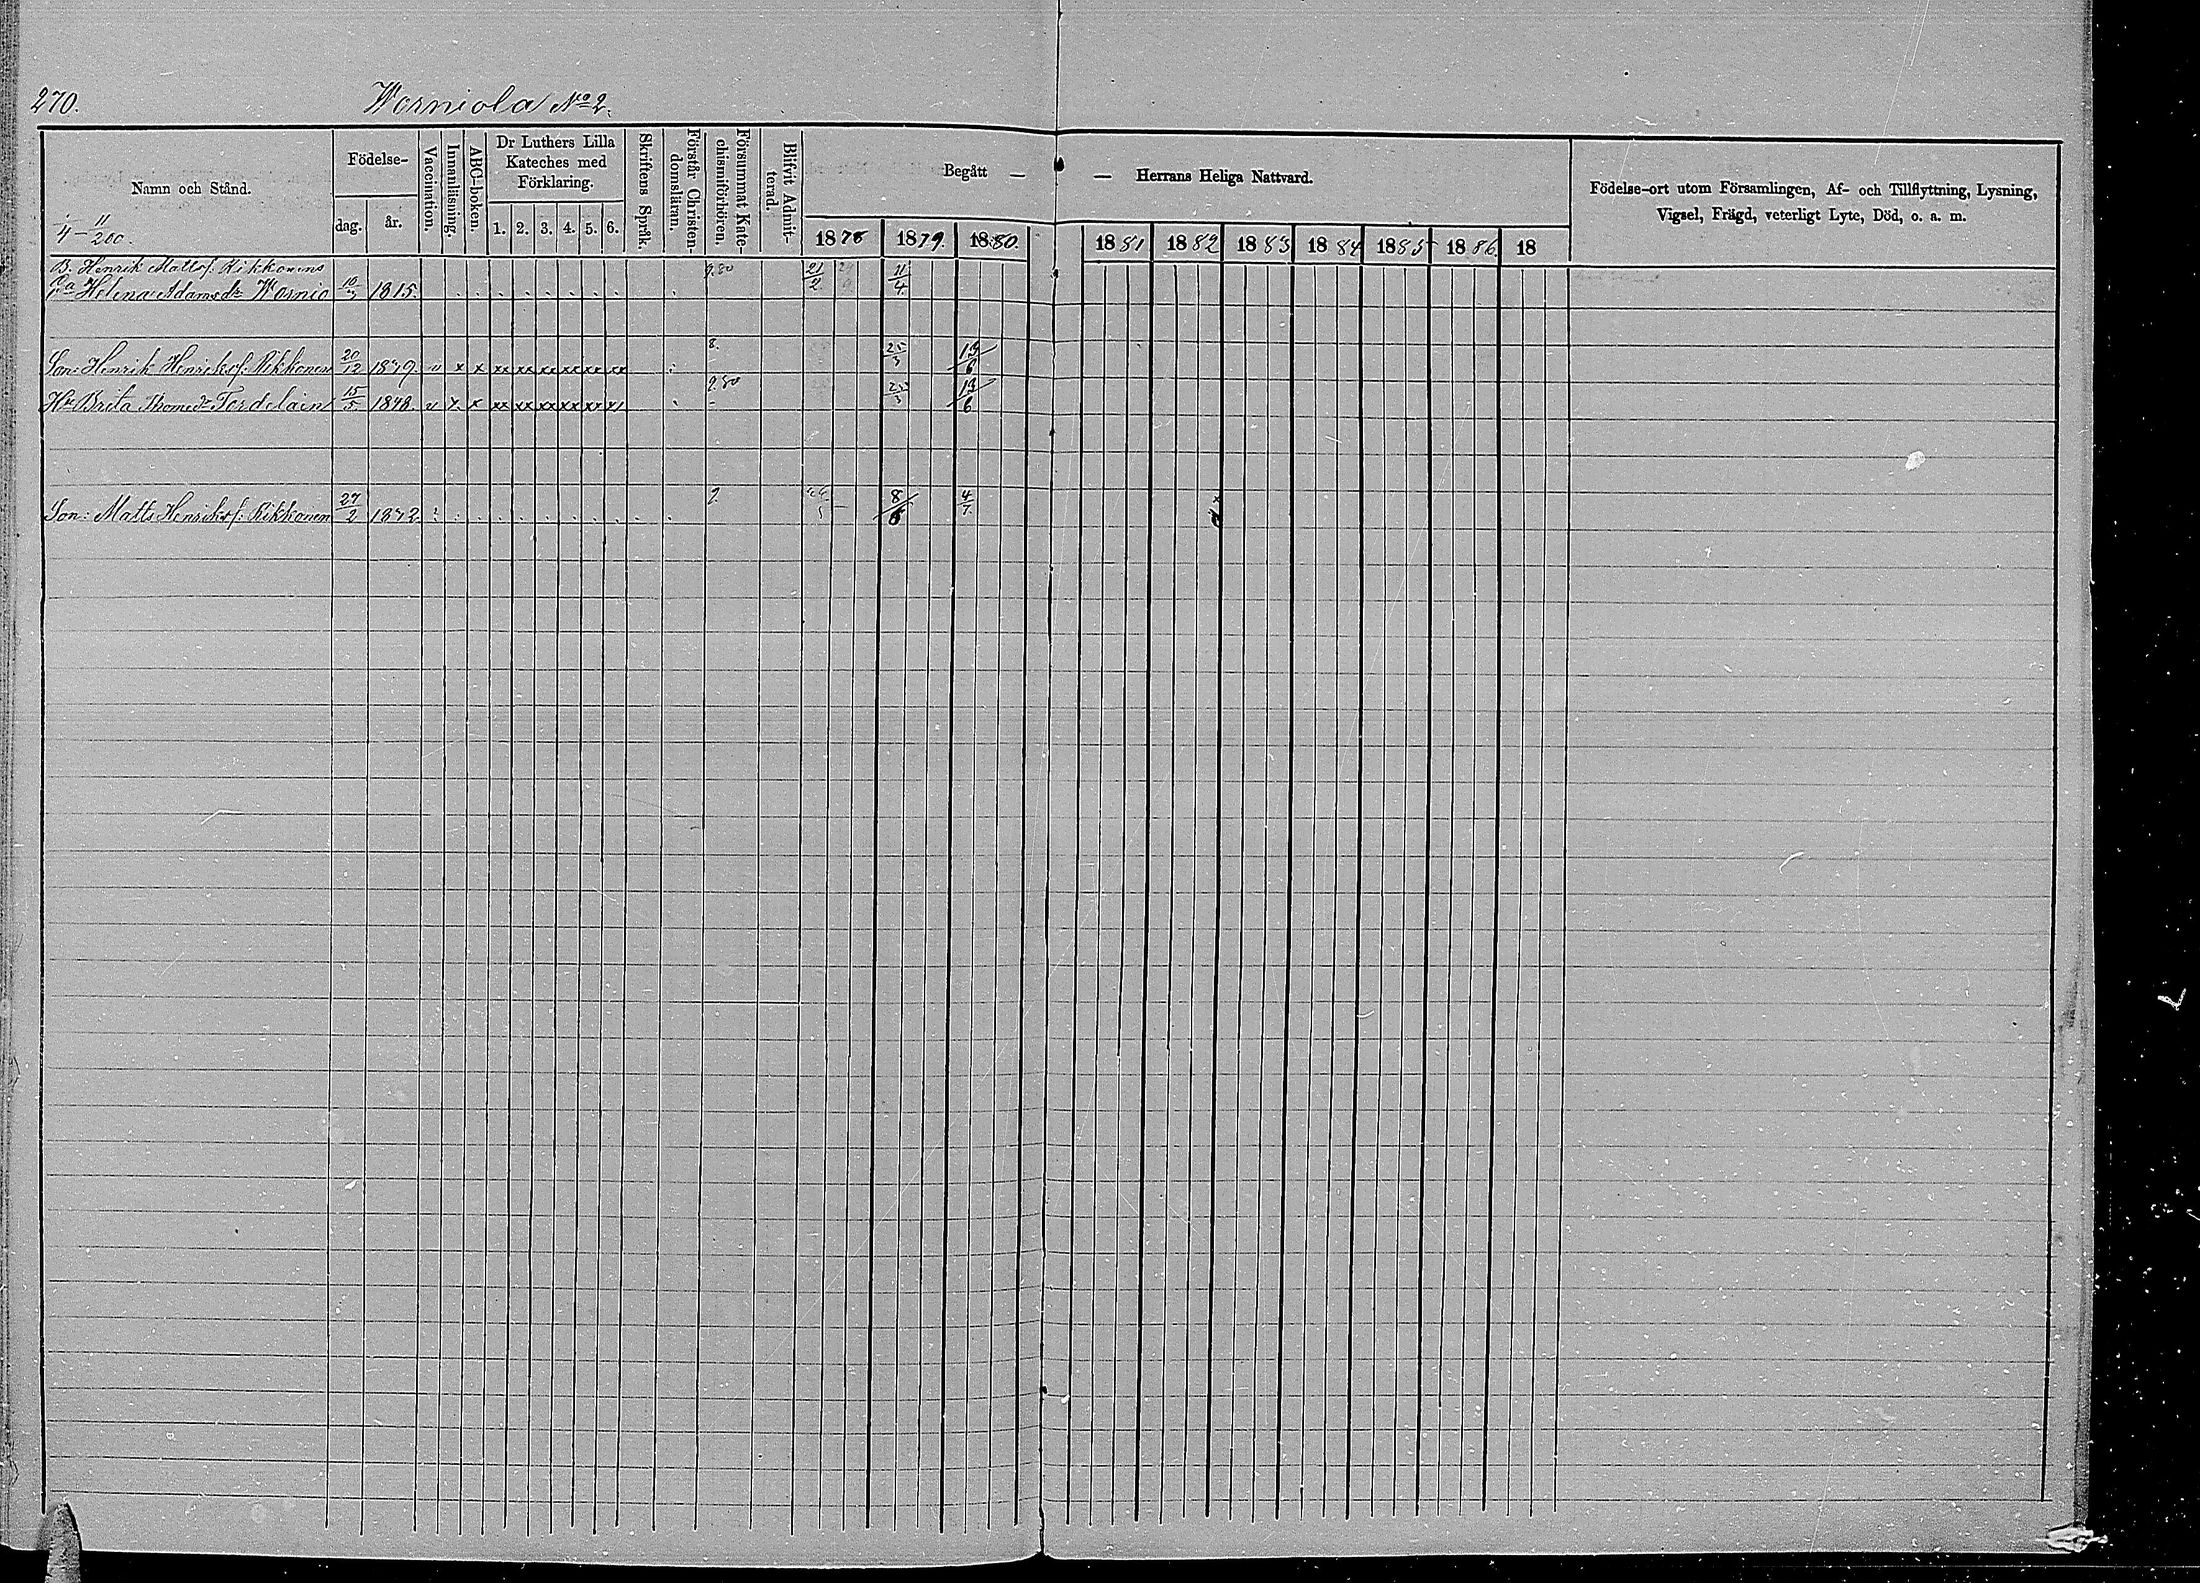 270. Worniola No 2.
Namn och Stånd. Födelse- dag. år. Vaccination. Innanläsning. ABC-boken. Dr Luthers Lilla Kateches med Förklaring. 1. 2. 3. 4. 5. 6. Skriftens Språk. Förstår Christendomsläran. Försummat Katechismiförhören. Blifvit Admitterad. Begått — — Herrans Heliga Nattvard. Födelse-ort utom Församlingen, Af- och Tillflyttning, Lysning, Vigsel, Frägd, veterligt Lyte, Död, o. a. m.
1878 1879. 1880. 1881 1882 1883 1884 1885 1886. 18
11/200.
B. Henrik Matts f. Rikkonens 9.80 21/2 11/4
Helena Adamsdr Wornio 1815.
Son: Henrik Henriks f. Rikkonen 20/12 1849. v x x xx xx xx xx xx xx 8. 25/3 13/6
Hu Brita Thomedr Tordelain 15/5 1848. v x x xx xx xx xx xx xx 9.80 25/3 13/6
Son: Matts Henriks f. Rikkonen 27/2 1842 9. 8/6 4/7.